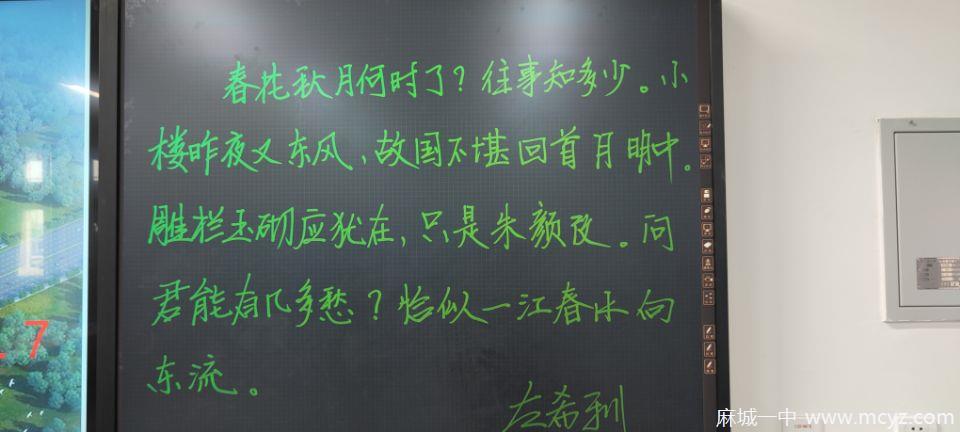 春花秋月何时了？往事知多少。小
楼昨夜又东风，故国不堪回首月明中。
雕栏玉砌应犹在，只是朱颜改。问
君能有几多愁？恰似一江春水向
东流。
左希利
7
麻城一中 www.mcyz.com